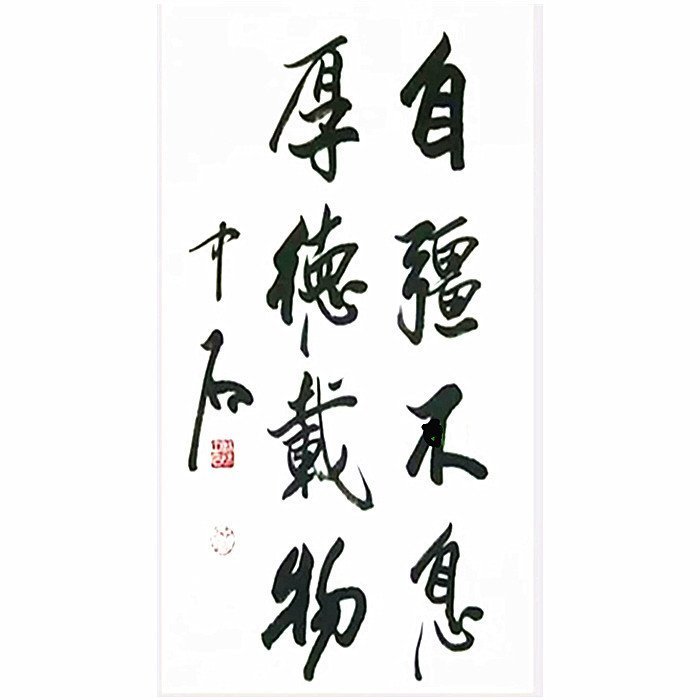 自彊不息
厚德載物
中石